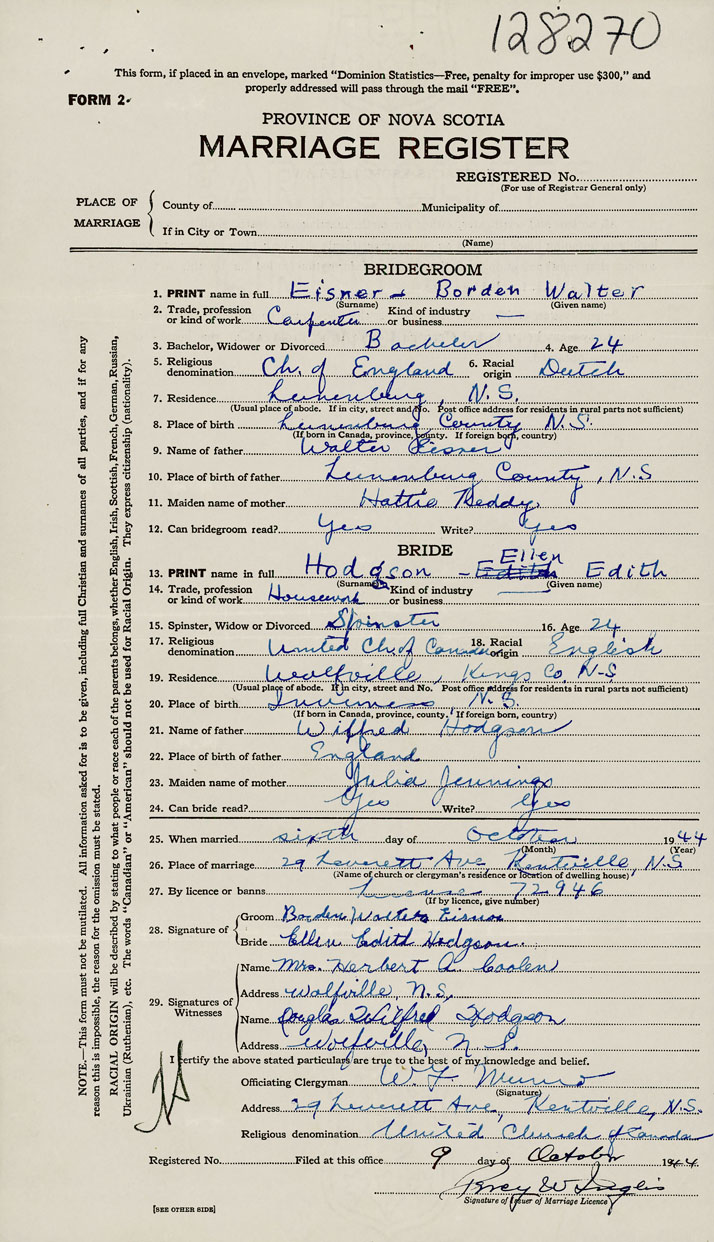 128270
This form, if placed in an envelope, marked "Dominion Statistics—Free, penalty for improper use $300," and
properly addressed will pass through the mail "FREE".
FORM 2.
PROVINCE OF NOVA SCOTIA
MARRIAGE REGISTER
REGISTERED No.
(For use of Registrar General only)
PLACE OF MARRIAGE
County of Municipality of
If in City or Town
(Name)
BRIDEGROOM
1. PRINT name in full Eisner - Borden Walter
(Surname) (Given name)
2. Trade, profession or kind of work Carpenter Kind of industry or business —
3. Bachelor, Widower or Divorced Bachelor 4. Age 24
5. Religious denomination Ch. of England 6. Racial origin Dutch
7. Residence Lunenburg, N.S.
(Usual place of abode. If in city, street and No. Post office address for residents in rural parts not sufficient)
8. Place of birth Lunenburg County N.S.
(If born in Canada, province, county. If foreign born, country)
9. Name of father Walter Eisner
10. Place of birth of father Lunenburg County, N.S
11. Maiden name of mother Hattie Reddy
12. Can bridegroom read? Yes Write? yes
BRIDE
13. PRINT name in full Hodgson - Edith Ellen Edith
(Surname) (Given name)
14. Trade, profession or kind of work Housework Kind of industry or business —
15. Spinster, Widow or Divorced Spinster 16. Age 24
17. Religious denomination United Ch of Canada 18. Racial origin English
19. Residence Wolfville, Kings Co. N-S
(Usual place of abode. If in city, street and No. Post office address for residents in rural parts not sufficient)
20. Place of birth Inverness N.S.
(If born in Canada, province, county. If foreign born, country)
21. Name of father Wilfred Hodgson
22. Place of birth of father England
23. Maiden name of mother Julia Jennings
24. Can bride read? Yes Write? Yes
25. When married sixth day of October 1944
(Month) (Year)
26. Place of marriage 29 Leverett Ave, Kentville, N.S
(Name of church or clergyman's residence or location of dwelling house)
27. By licence or banns License 72946
(If by licence, give number)
28. Signature of
Groom Borden Walter Eisnor
Bride Ellen Edith Hodgson.
29. Signatures of Witnesses
Name Mrs. Herbert A. Coolen
Address Wolfville, N.S.
Name Douglas Wilfred Hodgson
Address Wolfville N.S.
I certify the above stated particulars are true to the best of my knowledge and belief.
Officiating Clergyman W. F. Munro
(Signature)
Address 29 Leverett Ave, Kentville, N.S.
Religious denomination United Church of Canada
Registered No. Filed at this office 9 day of October 1944
Percy W Inglis
Signature of Issuer of Marriage Licence
[SEE OTHER SIDE]
NOTE.—This form must not be mutilated. All information asked for is to be given, including full Christian and surnames of all parties, and if for any
reason this is impossible, the reason for the omission must be stated.
RACIAL ORIGIN will be described by stating to what people or race each of the parents belongs, whether English, Irish, Scottish, French, German, Russian,
Ukrainian (Ruthenian), etc. The words "Canadian" or "American" should not be used for Racial Origin. They express citizenship (nationality).